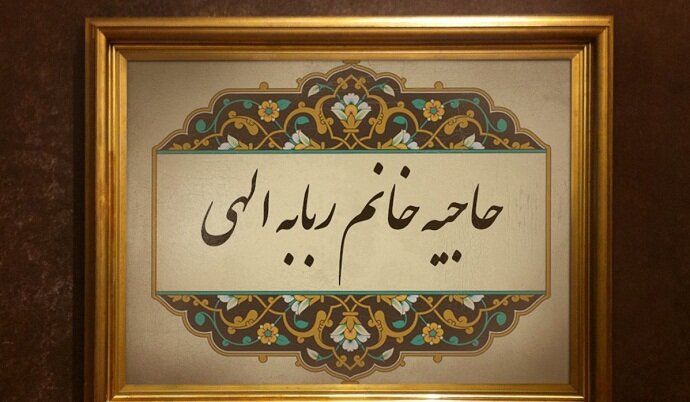 حاجیه خانم ربابه الهی